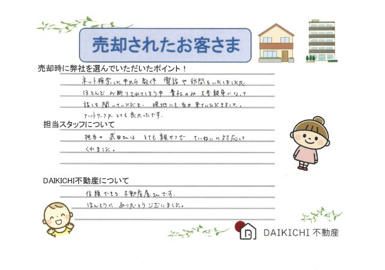 売却されたお客さま
売却時に弊社を選んでいただいたポイント！
ネット検索の中から数件 電話や訪問をいたしましたが
ほとんどが断りされてしまう中 貴社のみ 親身になって
話を聞いていただき、現地にも
フットワークもとても良かったです。
担当スタッフについて
担当の 武田さんは とても親切で ていねいに対応して
くれました。
DAIKICHI不動産について
信頼できる 不動産屋さんです。
ほんとうに ありがとうございました。
DAIKICHI 不動産